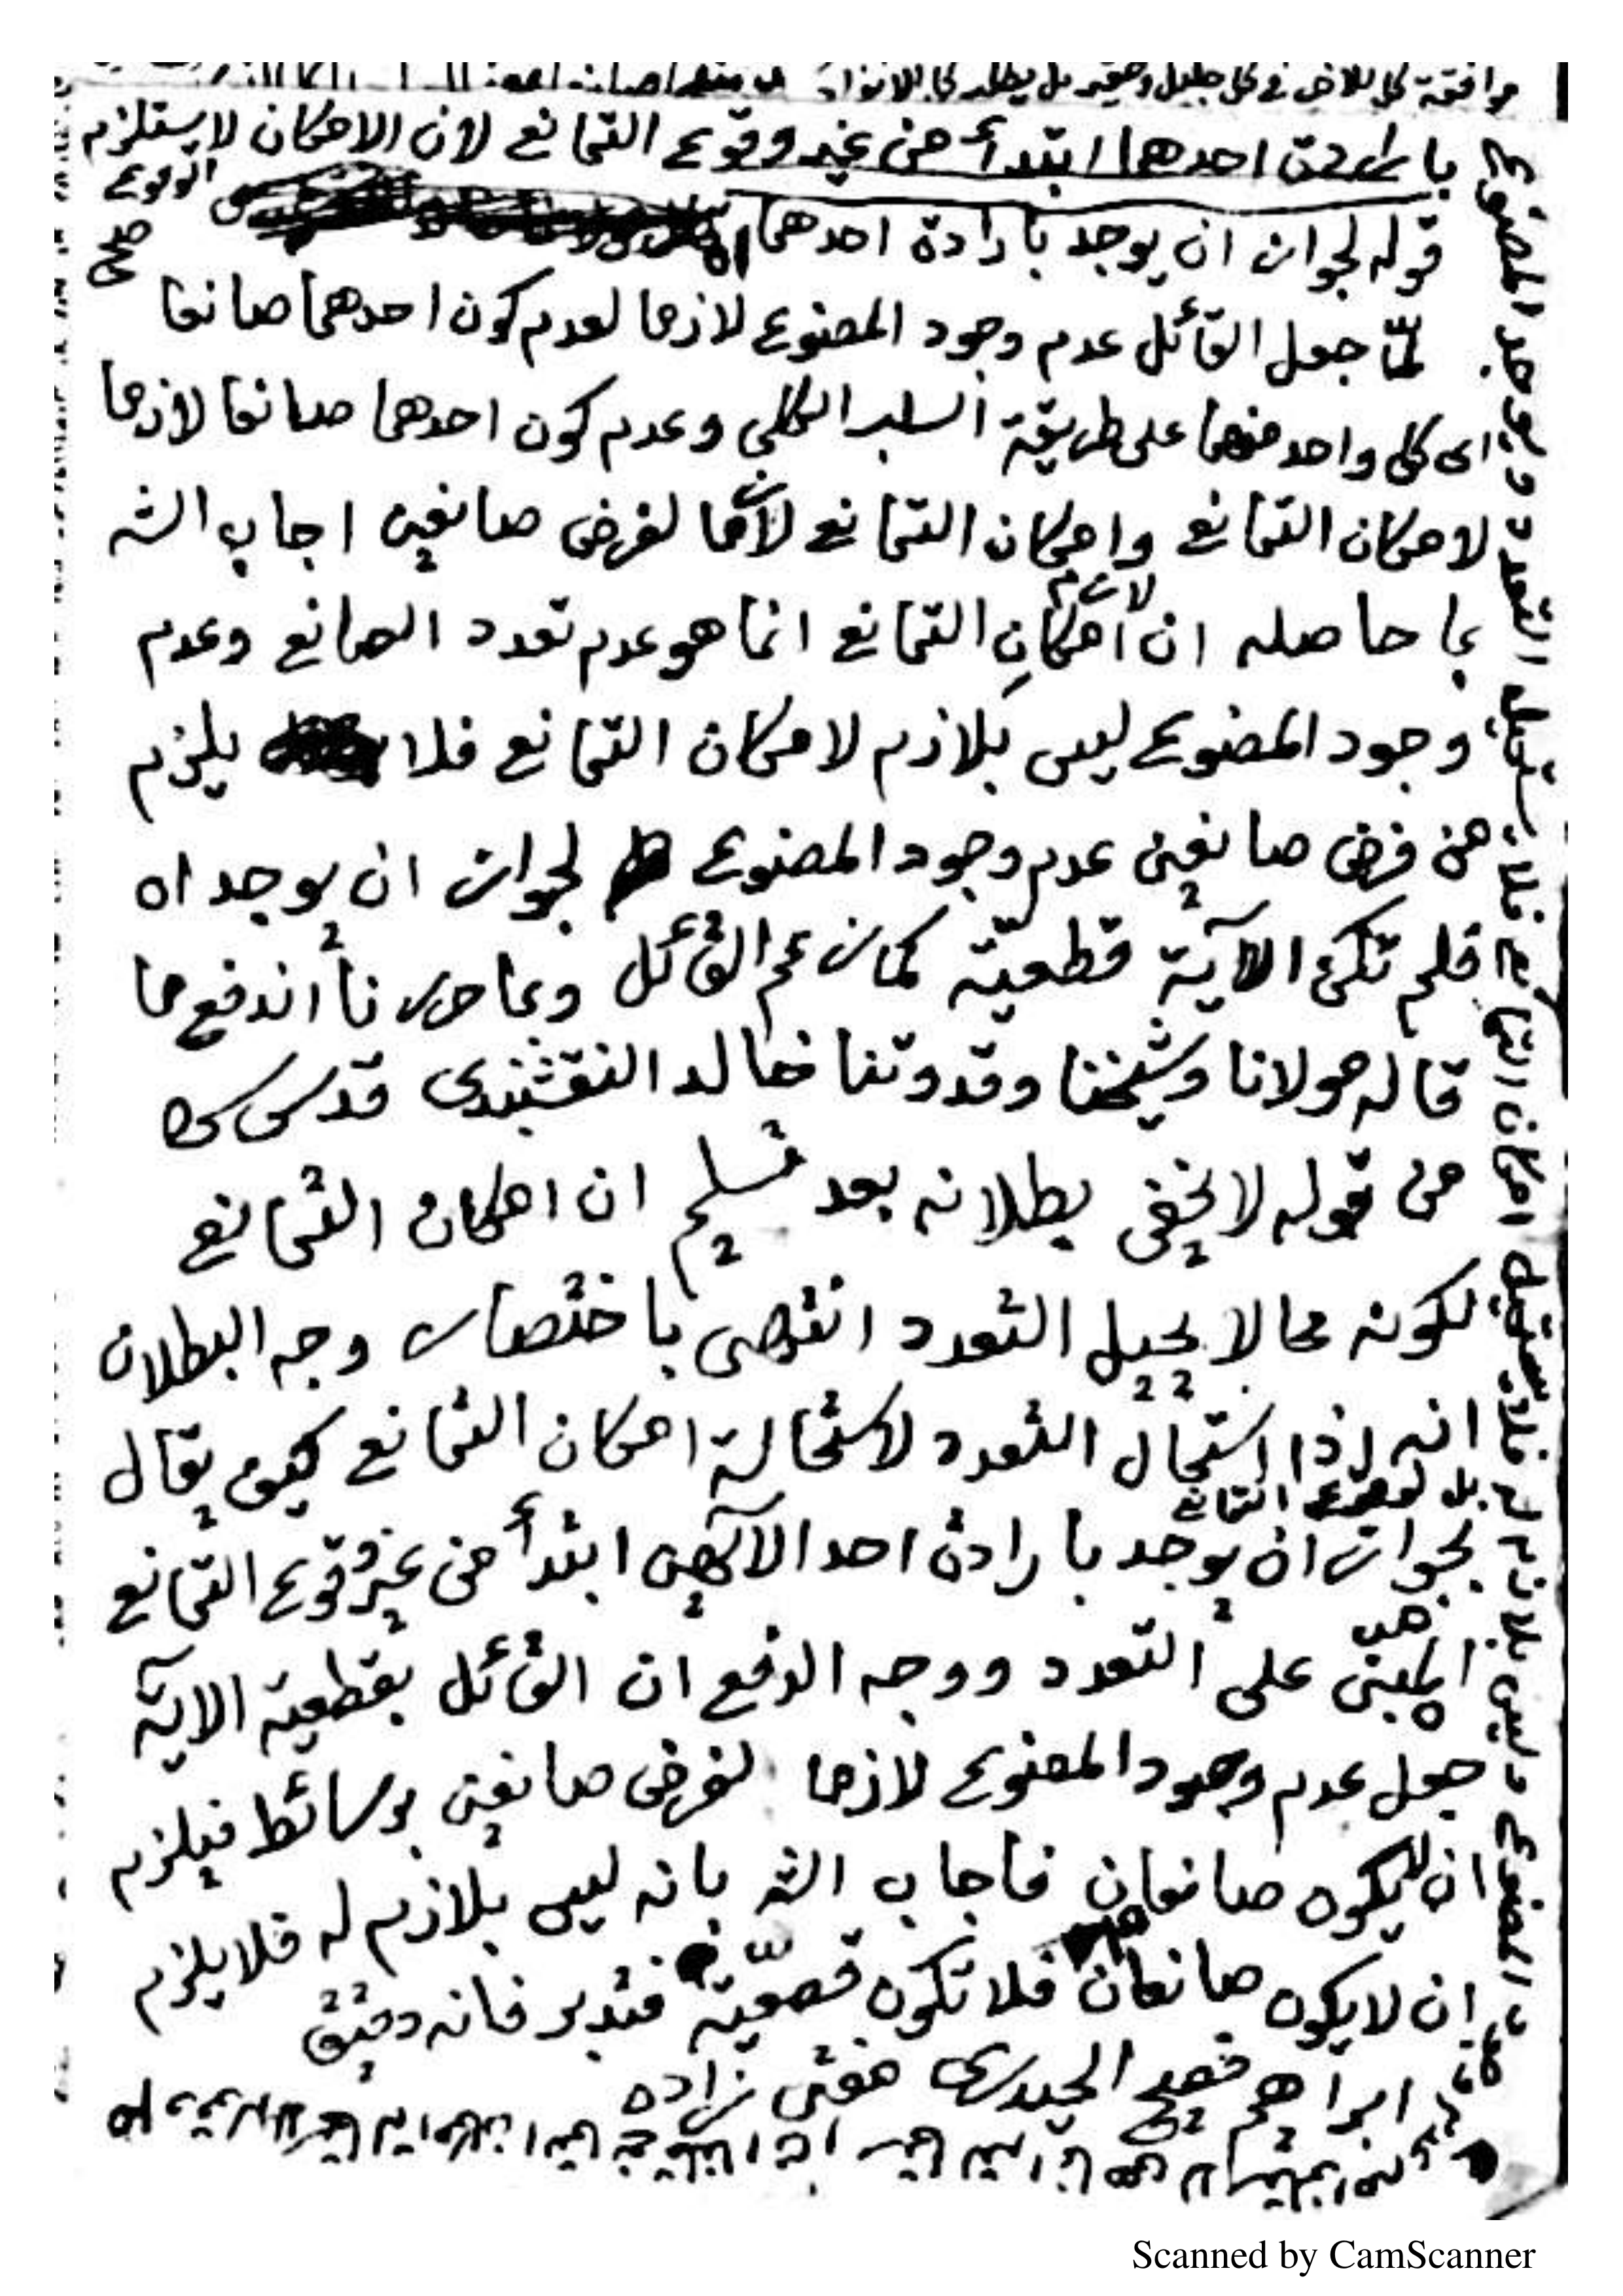 موافقة كل للاخر في كل جليل وحقير بل يطلب كل الانفراد
بارادة احدهما ابتدأ من غير وقوع التمانع لان الامكان لا يستلزم
الوقوع
صح
قوله لجواز ان يوجد بارادة احدهما اه
لمّا جعل القائل عدم وجود المصنوع لازما لعدم كون احدهما صانعا
اى كل واحد منهما على طريقة السلب الكلي وعدم كون احدهما صانعا لازما
لامكان التمانع وامكان التمانع لازما لفرض صانعين اجاب الشه
بما حاصله ان لازم امكان التمانع انما هو عدم تعدد الصانع وعدم
وجود المصنوع ليس بلازم لامكان التمانع فلا يلزم
من فرض صانعين عدم وجود المصنوع لجواز ان يوجد اه
فلم تكن الآية قطعيّة كما زعم القائل وبما حررنا اندفع ما
قاله مولانا وشيخنا وقدوتنا خالد النقشبندى قدس سره
من قوله لا يخفى بطلانه بعد تسليم ان امكان التمانع
لكونه محالا يحيل التعدد انتهى باختصار وجه البطلان
انه اذا استحال التعدد لاستحالة امكان التمانع كيف يقال
بل لوقوع التمانع
بجواز ان يوجد بارادة احد الآلهين ابتدأ من غير وقوع التمانع
المبنى على التعدد ووجه الدفع ان القائل بقطعية الاية
جعل عدم وجود المصنوع لازما لفرض صانعين بوسائط فيلزم
ان لا يكون صانعان فاجاب الشه بانه ليس بلازم له فلا يلزم
ان لا يكون صانعان فلا تكون قطعيّة فتدبر فانه دقيق
ابراهيم فصيح الحيدرى مفتى زاده
امكان التمانع فلا يستحيل التعدد ويوجد المصنوع
المصنوع وليس بلازم له فلا يستحيل
Scanned by CamScanner